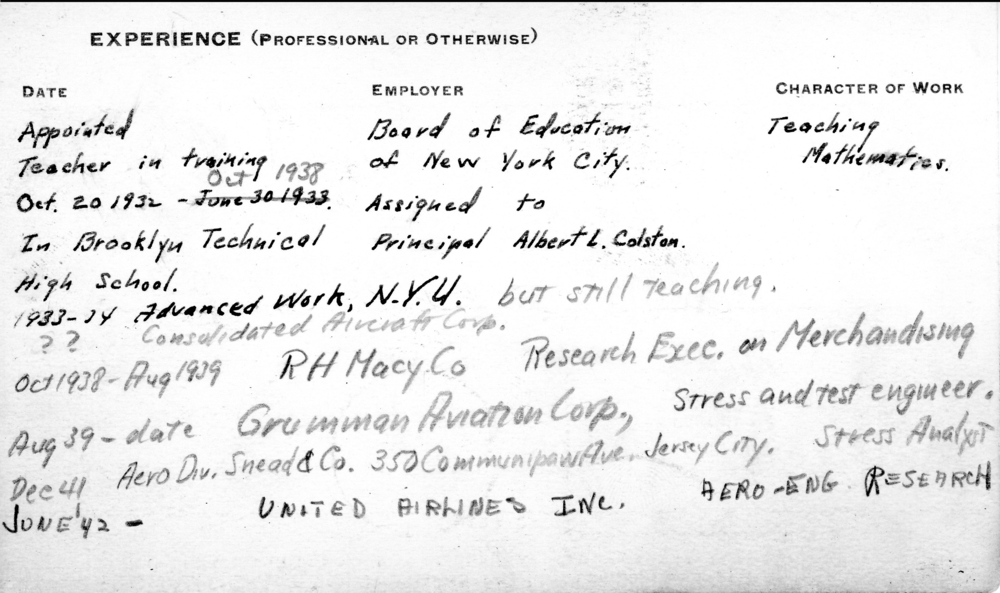 EXPERIENCE (PROFESSIONAL OR OTHERWISE)
DATE EMPLOYER CHARACTER OF WORK
Appointed Board of Education Teaching
Teacher in training of New York City. Mathematics.
Oct 1938
Oct. 20 1932 - June 30 1933. Assigned to
In Brooklyn Technical Principal Albert L. Colston.
High School.
1933-34 Advanced Work, N.Y.U. but still teaching.
? ? Consolidated Aircraft Corp.
Oct 1938 - Aug 1939 RH Macy Co Research Exec. on Merchandising
Aug 39 - date Grumman Aviation Corp., Stress and test engineer.
Dec 41 Aero Div. Snead & Co. 350 Communipaw Ave. Jersey City. Stress Analyst
JUNE '42 - UNITED AIRLINES INC. AERO-ENG RESEARCH